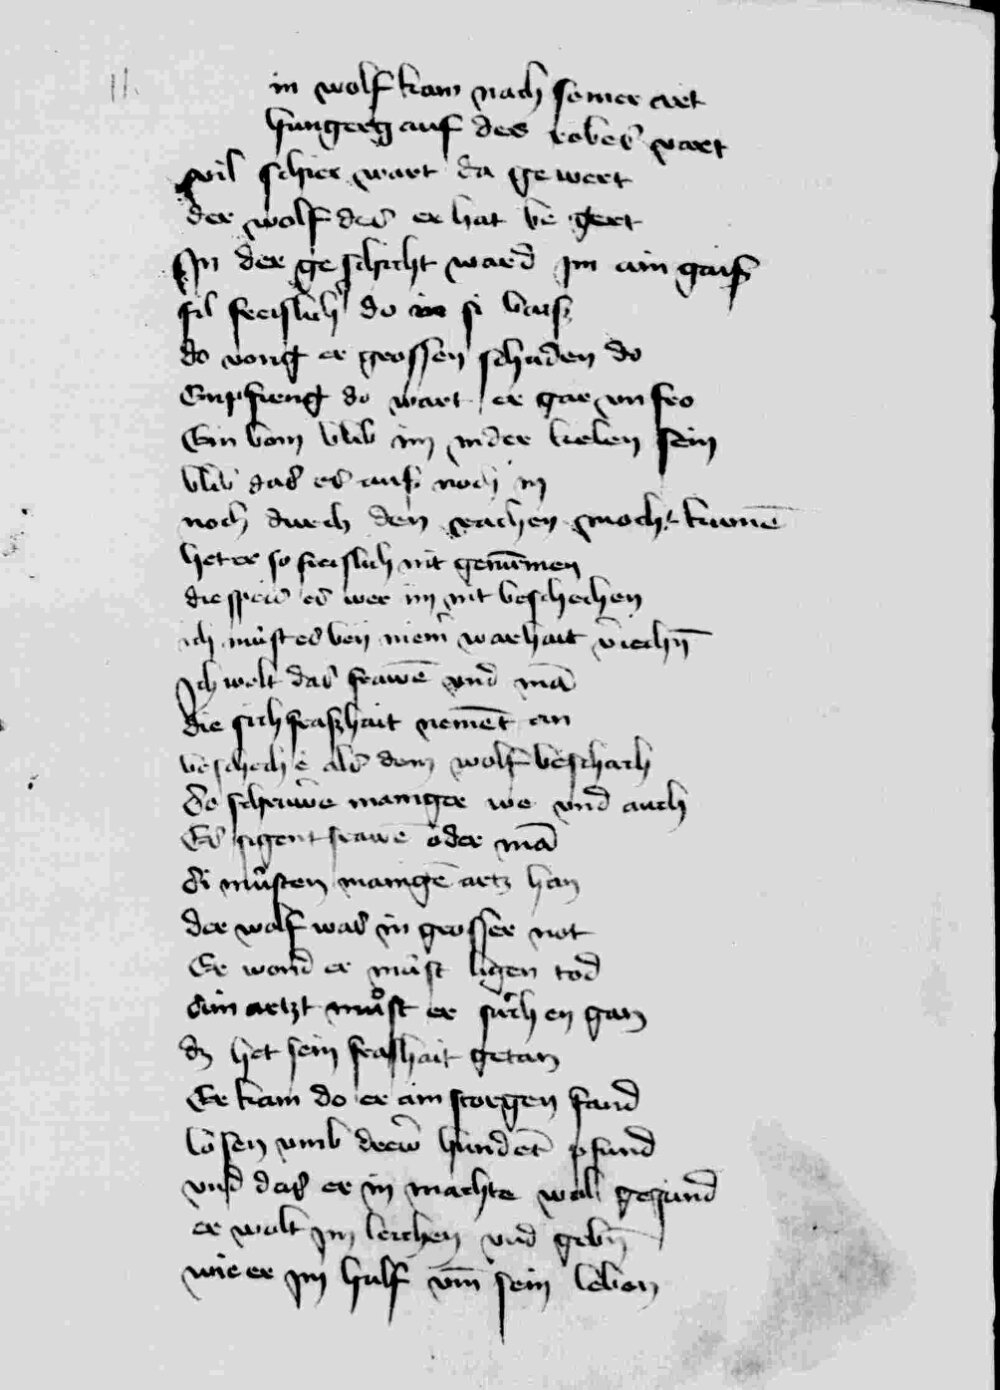 11.
in wolf kam nach seiner art
hungerg auf des robes vart
vil schier wart da ge wert
der wolf des er hat be gert
In der ge schicht ward im ain gaiss
fil freislich do in si baiss
do vong er grossen schaden do
Empfieng do wart er gar vnfro
Ein bain blib im in der kelen sein
blib das es auss noch in
noch durch den rachen mocht kumē
het er so freislich nit genūmen
die speis es wer im nit beschechen
ich můst es beÿ meiner warhait viechn̄
Ich welt das frawē vnd mā
die sich frashait nement an
beschech ē als dem wolf beschach
So schruwe maniger we vnd auch
Es sigent frawē oder mā
Si můsten mangē artz han
der wolf was in grosser not
Er wond er můst ligen tod
Ain artzt můst er sůchen gan
dz het sein frashait getan
Er kam do er ain storgen fand
lősen vmb drew hundet pfund
vnd das er in machte wol gesund
er wolt im lichen vnd gebn̄
wie er im hulf vm̄ sein leben